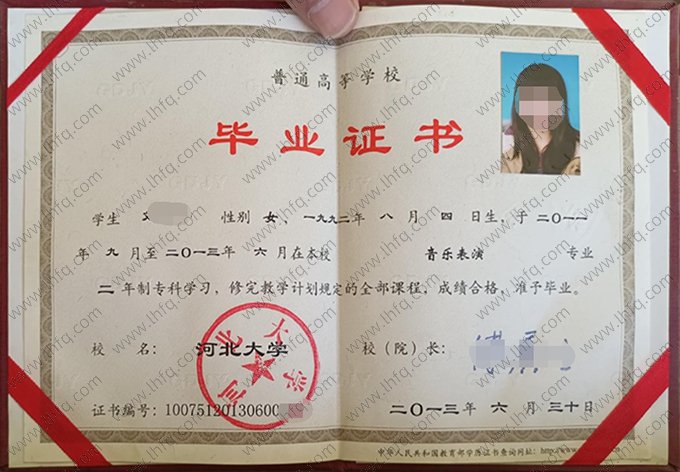 普通高等学校
毕业证书
学生 性别 女、一九九二年 八 月 四 日生,于二〇一一
年 九 月至二〇一三年 六 月在本校 音乐表演 专业
二 年制专科学习,修完教学计划规定的全部课程,成绩合格,准予毕业。
校 名: 河北大学 校(院)长:
河北大学
证书编号:10075120130600 二〇一三年 六 月 三十日
中华人民共和国教育部学历证书查询网址:http://www.
www.lhfq.com